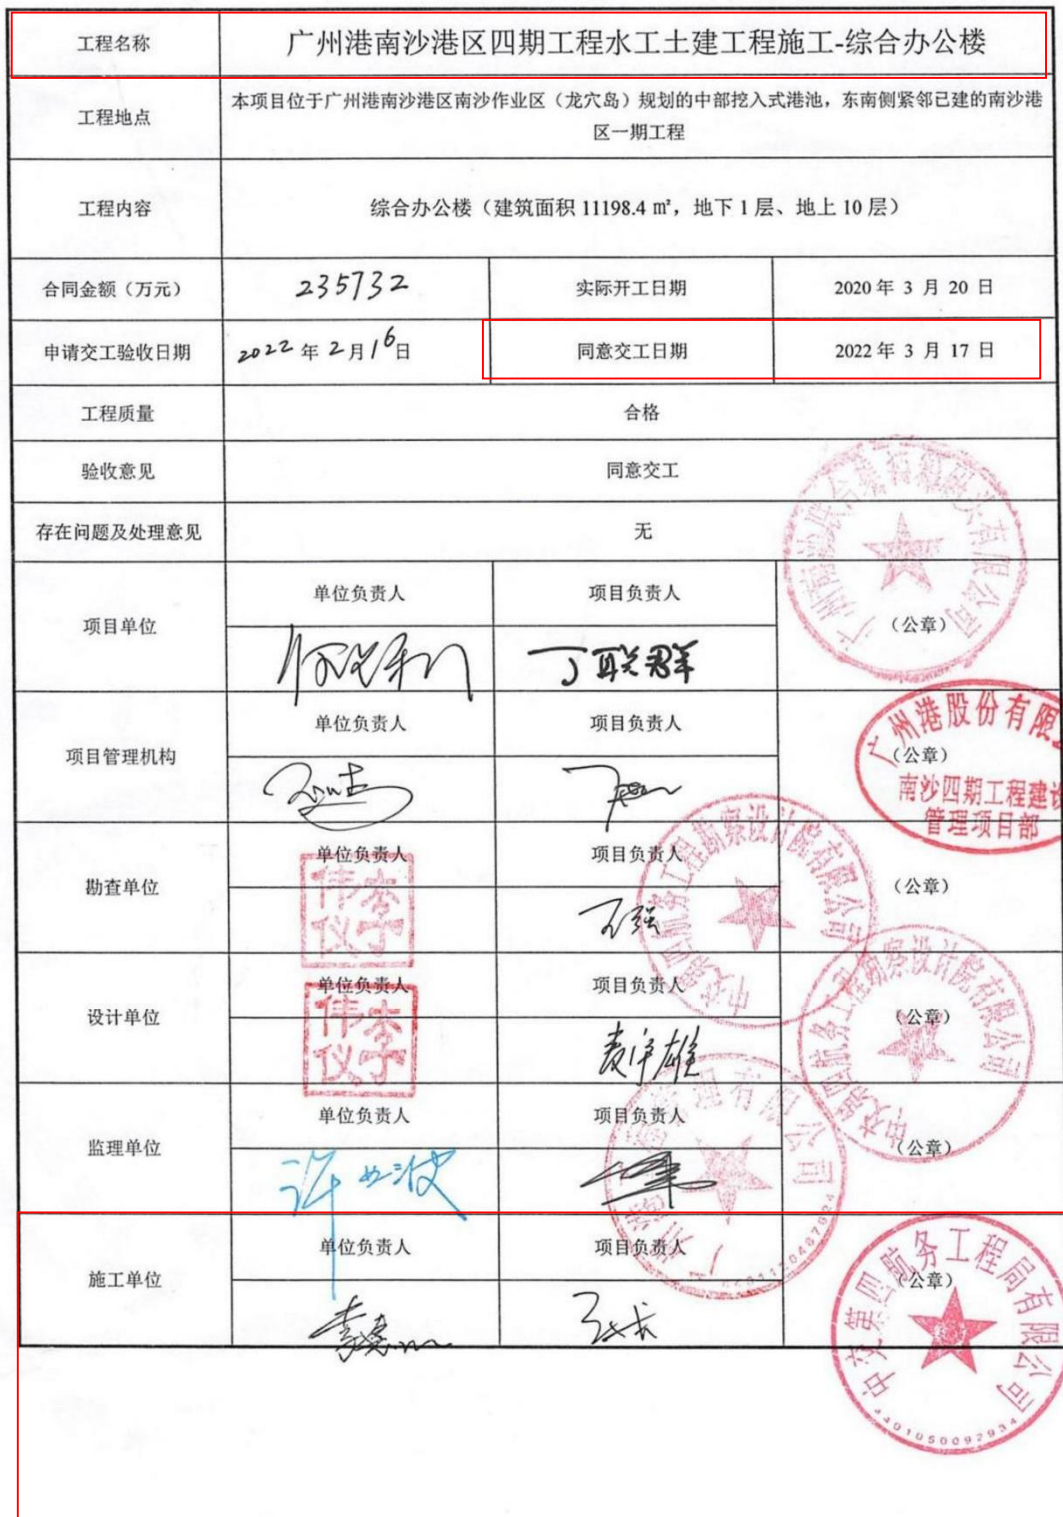 工程名称
广州港南沙港区四期工程水工土建工程施工-综合办公楼
工程地点
本项目位于广州港南沙港区南沙作业区（龙穴岛）规划的中部挖入式港池，东南侧紧邻已建的南沙港
区一期工程
工程内容
综合办公楼（建筑面积 11198.4 ㎡，地下 1 层、地上 10 层）
合同金额（万元）
235732
实际开工日期
2020 年 3 月 20 日
申请交工验收日期
2022 年 2 月 16 日
同意交工日期
2022 年 3 月 17 日
工程质量
合格
验收意见
同意交工
存在问题及处理意见
无
项目单位
单位负责人
项目负责人
丁联群
（公章）
项目管理机构
单位负责人
项目负责人
（公章）
广州港股份有限
南沙四期工程建设
管理项目部
勘查单位
单位负责人
项目负责人
（公章）
李子
伟仪
中交第四航务工程勘察设计院有限公司
设计单位
单位负责人
项目负责人
（公章）
李子
伟仪
麦宇雄
中交第四航务工程勘察设计院有限公司
监理单位
单位负责人
项目负责人
（公章）
施工单位
单位负责人
项目负责人
（公章）
中交第四航务工程局有限公司
4401050092934